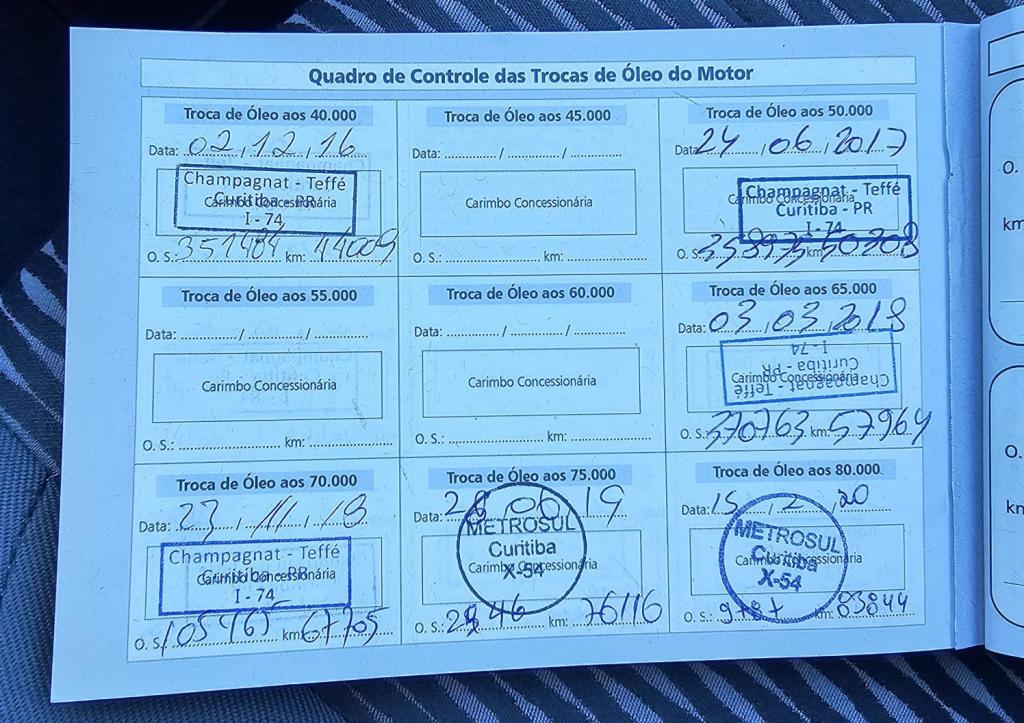 Quadro de Controle das Trocas de Óleo do Motor
Troca de Óleo aos 40.000
Data: 02/12/16
Champagnat - Teffé
Curitiba - PR
Carimbo Concessionária
I - 74
O. S.: 351484 km: 44009
Troca de Óleo aos 45.000
Data: ............ / ........... / ...........
Carimbo Concessionária
O. S.: ........................ km: ...................
Troca de Óleo aos 50.000
Data: 24/06/2017
Champagnat - Teffé
Carimbo Concessionária
Curitiba - PR
I - 74
O. S.: 358975 km: 50308
Troca de Óleo aos 55.000
Data: ............ / ........... / ...........
Carimbo Concessionária
O. S.: ........................ km: ...................
Troca de Óleo aos 60.000
Data: ............ / ........... / ...........
Carimbo Concessionária
O. S.: ........................ km: ...................
Troca de Óleo aos 65.000
Data: 03/03/2018
I - 74
Curitiba - PR
Carimbo Concessionária
Champagnat - Teffé
O. S.: 370763 km: 57964
Troca de Óleo aos 70.000
Data: 23/11/18
Champagnat - Teffé
Curitiba - PR
Carimbo Concessionária
I - 74
O. S.: 105465 km: 67705
Troca de Óleo aos 75.000
Data: 28/06/19
METROSUL
Curitiba
Carimbo Concessionária
X-54
O. S.: km: 76116
Troca de Óleo aos 80.000
Data: 15/2/20
METROSUL
Curitiba
Carimbo Concessionária
X-54
O. S.: 9787 km: 83844
O.
km
O.
km